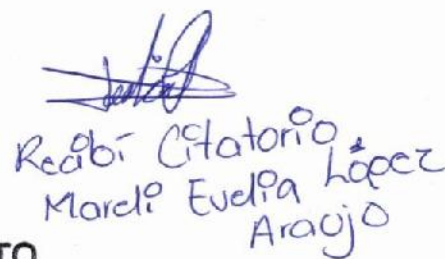 Recibí Citatorio.
Mareli Evelia López
Araujo
TO